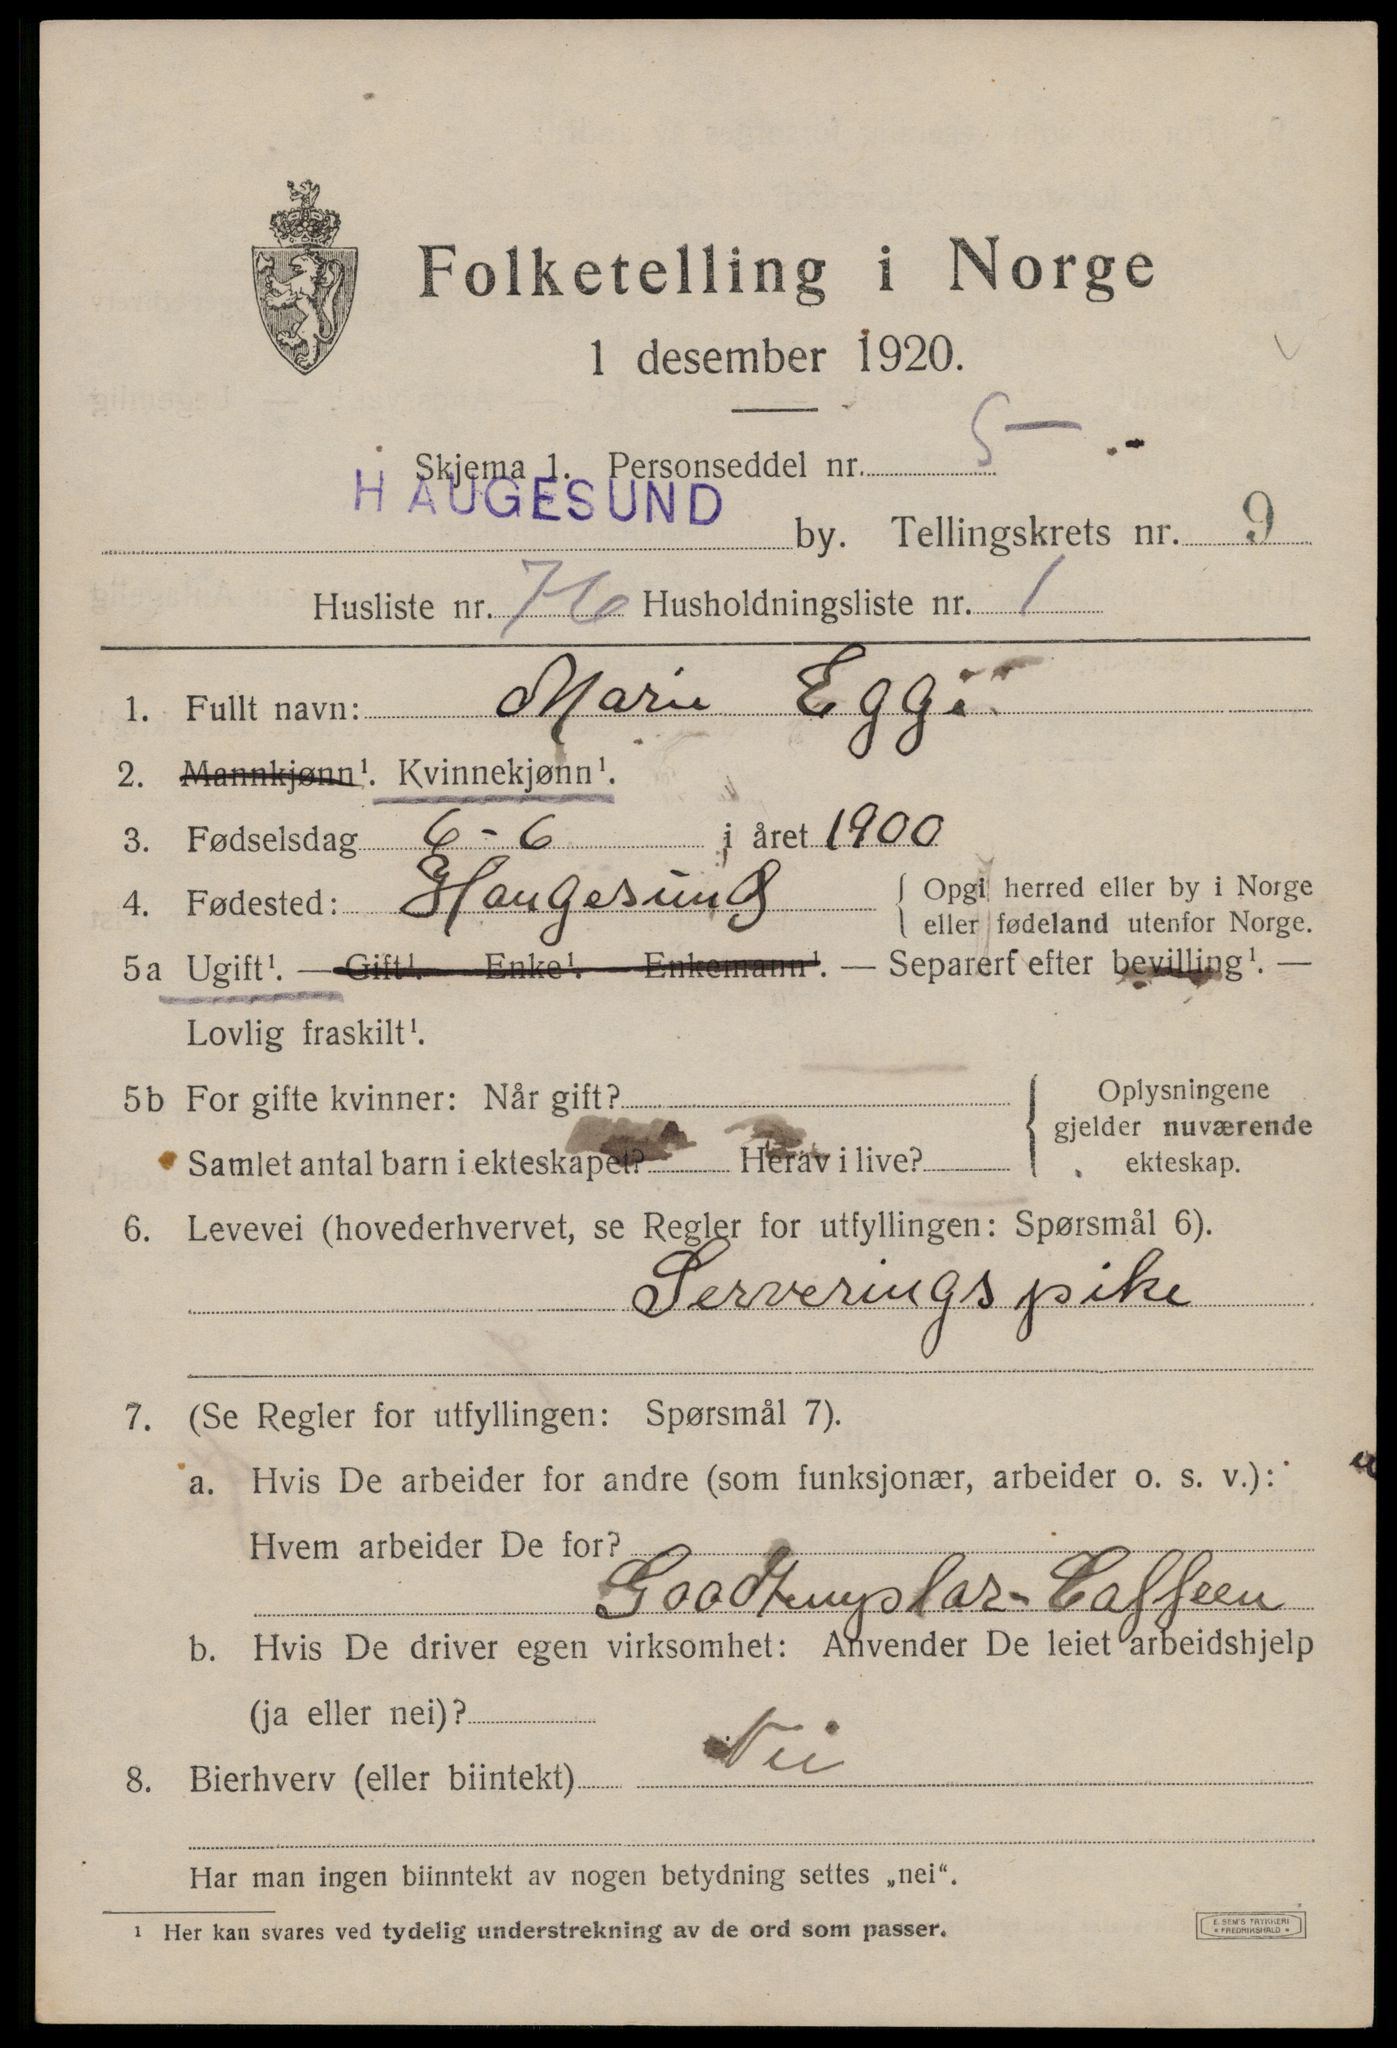 Folketelling i Norge
1 desember 1920.
Skjema 1. Personseddel nr. 5
HAUGESUND by. Tellingskrets nr. 9
Husliste nr. 76 Husholdningsliste nr. 1
1. Fullt navn: Marie Egge
2. Mannkjønn¹. Kvinnekjønn¹.
3. Fødselsdag 6-6 i året 1900
4. Fødested: Haugesund { Opgi herred eller by i Norge
eller fødeland utenfor Norge.
5a Ugift¹. — Gift¹. Enke¹. Enkemann¹. — Separert efter bevilling¹. —
Lovlig fraskilt¹.
5b For gifte kvinner: Når gift?
Samlet antal barn i ekteskapet? Herav i live?
{ Oplysningene
gjelder nuværende
ekteskap.
6. Levevei (hovederhvervet, se Regler for utfyllingen: Spørsmål 6).
Serveringspike
7. (Se Regler for utfyllingen: Spørsmål 7).
a. Hvis De arbeider for andre (som funksjonær, arbeider o. s. v.):
Hvem arbeider De for?
Goodtemplar-Caffeen
b. Hvis De driver egen virksomhet: Anvender De leiet arbeidshjelp
(ja eller nei)?
8. Bierhverv (eller biintekt) Nei
Har man ingen biinntekt av nogen betydning settes „nei“.
¹ Her kan svares ved tydelig understrekning av de ord som passer.
E. SEM'S TRYKKERI
FREDRIKSHALD